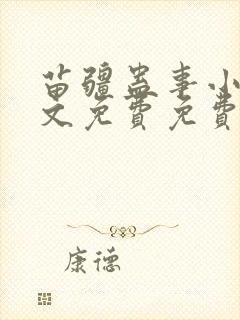 苗疆蛊事小
文免费免费
康德